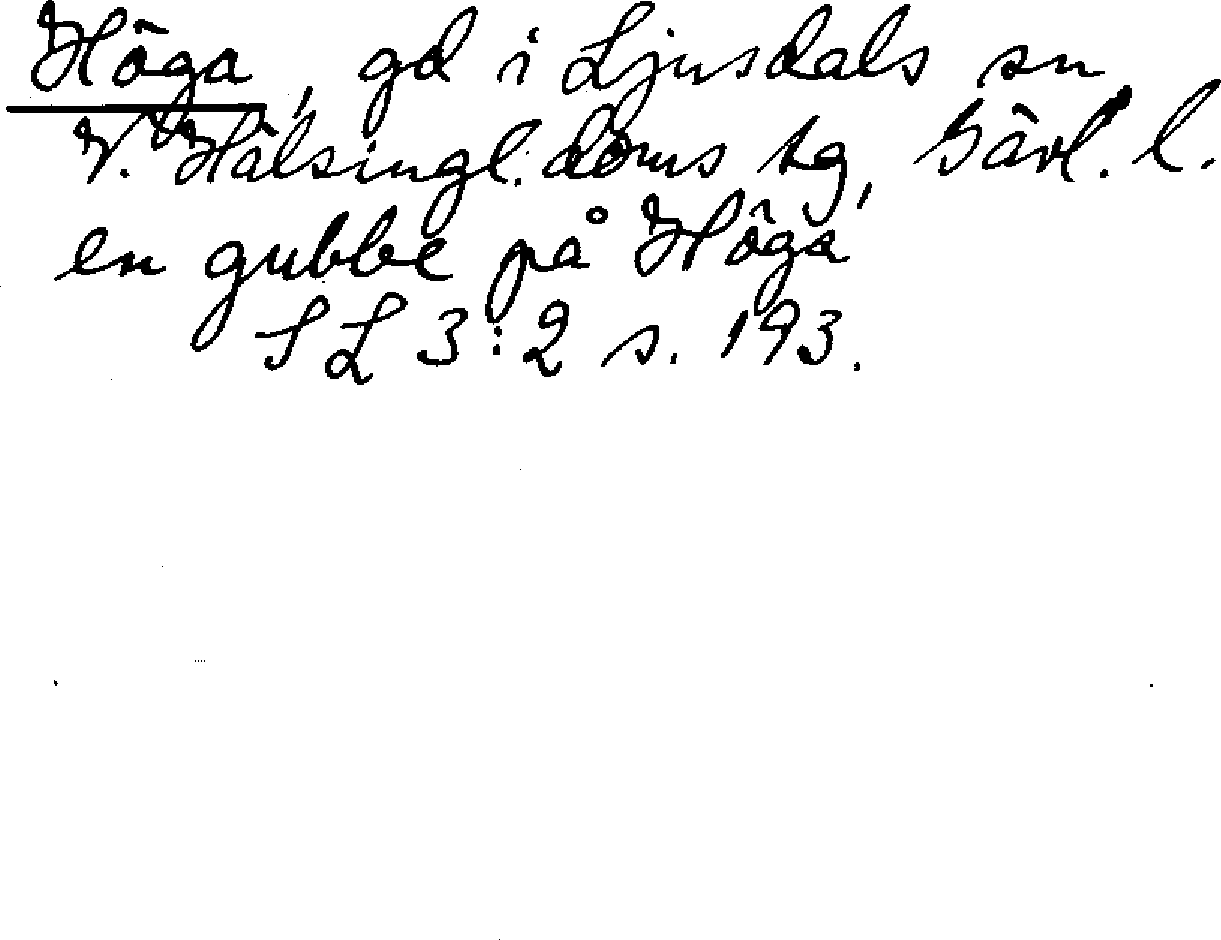 Höga, gd i Ljusdals sn
V. Hälsingl. doms tg, Gävl. l.
en gubbe på Höga
SL 3:2 s. 193.